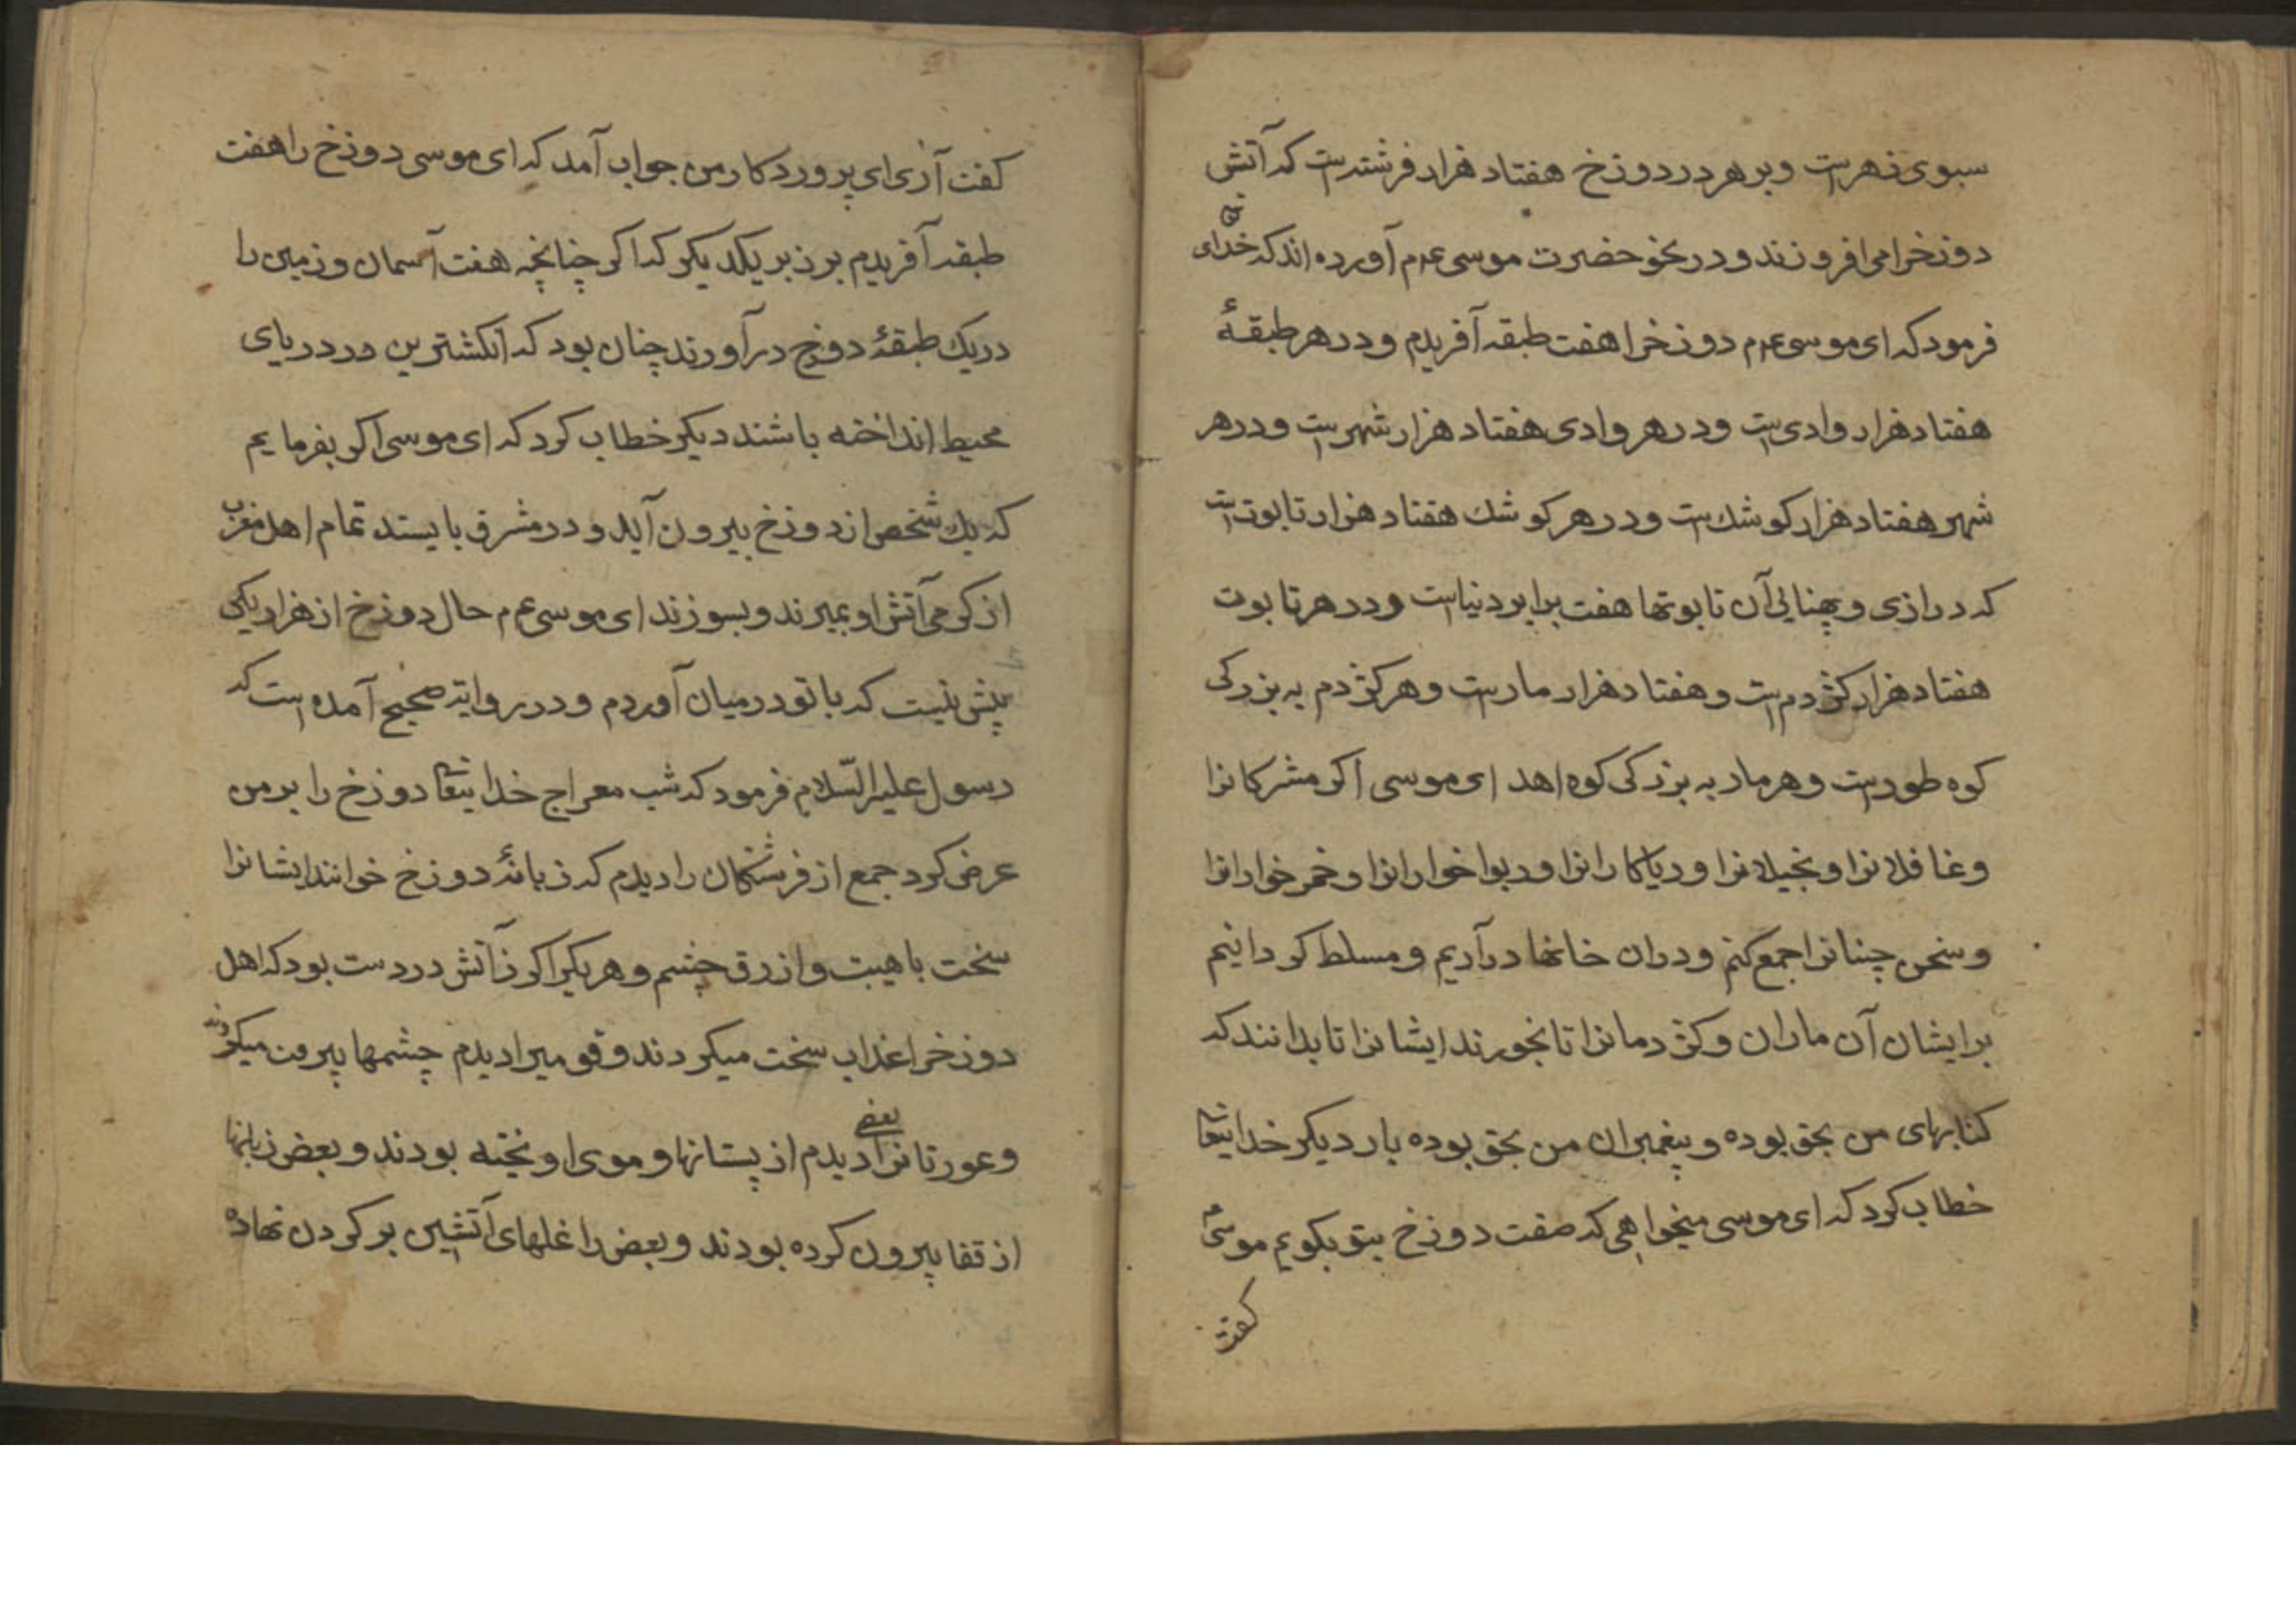 سبوی زهرست و بر هر در دوزخ هفتاد هزار فرشته است که آتش
دوزخرا می افروزند و در نحو حضرت موسی عم م آورده اند که خدای تع
فرمود که ای موسی عم م دوزخرا هفت طبقه آفریدم و در هر طبقهٔ
هفتاد هزار وادی است و در هر وادی هفتاد هزار شهر است و در هر
شهر هفتاد هزار کوشك است و در هر کوشك هفتاد هزار تابوت است
که درازی و پهنایی آن تابوتها هفت برابر دنیاست و در هر تابوت
هفتاد هزار کژدم است و هفتاد هزار مارست و هر کژدم به بزرکی
کوه طورست و هر مار به بزرکی کوه اهد ای موسی اکر مشرکانرا
و غافلانرا و بخیلانرا و ریاکارانرا و ربواخوارانرا و خمرخوارانرا
و سخن چینانرا جمع کنم و دران خانها درآریم و مسلط کردانیم
برایشان آن ماران و کژدمانرا تا بخورند ایشانرا تا بدانند که
کتابهای من بحق بوده و پیغمبران من بحق بوده بار دیکر خدایتعا
خطاب کرد که ای موسی میخواهی که صفت دوزخ بتو بکویم موسی م
کفت
کفت آری ای پروردکار من جواب آمد که ای موسی دوزخ را هفت
طبقه آفریدم بر زبر یکدیکر که اکر چنانچه هفت آسمان و زمین را
در یك طبقهٔ دوزخ درآورند چنان بود که انکشترین در دریای
محیط انداخته باشند دیکر خطاب کرد که ای موسی اکر بفرمایم
که یك شخص از دوزخ بیرون آید و در مشرق بایستد تمام اهل مغرب
از کرمی آتش او بمیرند و بسوزند ای موسی عم م حال دوزخ از هزار یکی
پیش نیست که با تو در میان آوردم و در روایت صحیح آمده است که
رسول علیه السّلام فرمود که شب معراج خدایتعا دوزخ را بر من
عرض کرد جمع از فرشتکان را دیدم که زبانهٔ دوزخ خوانند ایشانرا
سخت با هیبت و ازرق چشم و هر یکیرا کرز آتش در دست بود که اهل
دوزخرا عذاب سخت میکردند و قومیرا دیدم چشمها بیرون میکردند
و عورتانرا بعضی دیدم از پستانها و موی اویخته بودند و بعض زبانها
از قفا بیرون کرده بودند و بعض را غلهای آتشین بر کردن نهاده